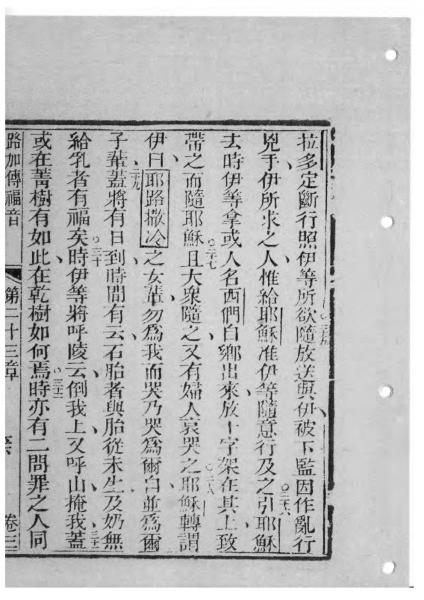 拉多定斷行照伊等所欲隨放送與伊被下監因作亂行
兇手伊所求之人惟給耶穌准伊等隨意行及之引耶穌
去時伊等拿或人名西們自鄉出來放十字架在其上致
帶之而隨耶穌且大衆隨之又有婦人哀哭之耶穌轉謂
伊曰耶路撒冷之女輩勿爲我而哭乃哭爲爾自並爲爾
子輩蓋將有日到時間有云石胎者與胎從未生及奶無
給乳者有福矣時伊等將呼陵云倒我上又呼山掩我蓋
或在菁樹有如此在乾樹如何焉時亦有二問罪之人同
路加傳福音 第二十三章 卷三